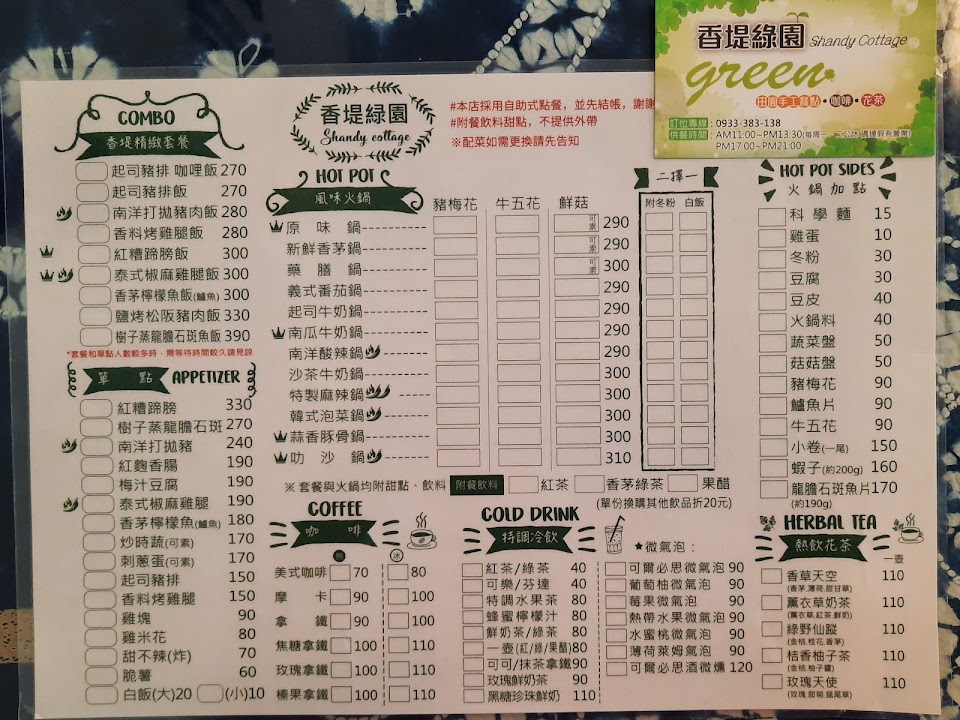 香堤綠園 Shandy Cottage
green
田園手工餐點・咖啡・花茶
訂位專線：0933-383-138
供餐時間：AM11:00~PM13:30
PM17:00~PM21:00
COMBO
香堤精緻套餐
起司豬排 咖哩飯 270
起司豬排飯 270
南洋打拋豬肉飯 280
香料烤雞腿飯 280
紅糟蹄膀飯 300
泰式椒麻雞腿飯 300
香茅檸檬魚飯(鱸魚) 300
鹽烤松阪豬肉飯 330
樹子蒸龍膽石斑魚飯 390
*套餐和單點人數較多時，需等待時間較久請見諒
單點 APPETIZER
紅糟蹄膀 330
樹子蒸龍膽石斑 270
南洋打拋豬 240
紅麴香腸 190
梅汁豆腐 190
泰式椒麻雞腿 190
香茅檸檬魚(鱸魚) 180
炒時蔬(可素) 170
刺蔥蛋(可素) 170
起司豬排 150
香料烤雞腿 150
雞塊 90
雞米花 80
甜不辣(炸) 70
脆薯 60
白飯(大)20 (小)10
香堤綠園
Shandy cottage
#本店採用自助式點餐，並先結帳，謝謝
#附餐飲料甜點，不提供外帶
※配菜如需更換請先告知
HOT POT
風味火鍋
豬梅花 牛五花 鮮菇
二擇一
附冬粉 白飯
原味鍋 可素 290
新鮮香茅鍋 可素 290
藥膳鍋 可素 300
義式番茄鍋 290
起司牛奶鍋 290
南瓜牛奶鍋 290
南洋酸辣鍋 290
沙茶牛奶鍋 300
特製麻辣鍋 300
韓式泡菜鍋 300
蒜香豚骨鍋 300
叻沙鍋 310
※ 套餐與火鍋均附甜點、飲料 附餐飲料 紅茶 香茅綠茶 果醋
(單份換購其他飲品折20元)
HOT POT SIDES
火鍋加點
科學麵 15
雞蛋 10
冬粉 30
豆腐 30
豆皮 40
火鍋料 40
蔬菜盤 50
菇菇盤 50
豬梅花 90
鱸魚片 90
牛五花 90
小卷(一尾) 150
蝦子(約200g) 160
龍膽石斑魚片 170
(約190g)
COFFEE
咖啡
熱 冰
美式咖啡 70 80
摩卡 90 100
拿鐵 90 100
焦糖拿鐵 100 110
玫瑰拿鐵 100 110
榛果拿鐵 100 110
COLD DRINK
特調冷飲
紅茶/綠茶 40
可樂/芬達 40
特調水果茶 80
蜂蜜檸檬汁 80
鮮奶茶/綠茶 80
一壺(紅/綠/果醋) 80
可可/抹茶拿鐵 90
玫瑰鮮奶茶 90
黑糖珍珠鮮奶 110
★微氣泡：
可爾必思微氣泡 90
葡萄柚微氣泡 90
莓果微氣泡 90
熱帶水果微氣泡 90
水蜜桃微氣泡 90
薄荷萊姆微氣泡 90
可爾必思酒微燻 120
HERBAL TEA
熱飲花茶
一壺
香草天空 110
(香茅,薄荷,甜甘草)
薰衣草奶茶 110
(薰衣草,紅茶,鮮奶)
綠野仙蹤 110
(金桔,桂花,香茅)
桔香柚子茶 110
(金桔,柚子醬)
玫瑰天使 110
(玫瑰,甜菊,鼠尾草)